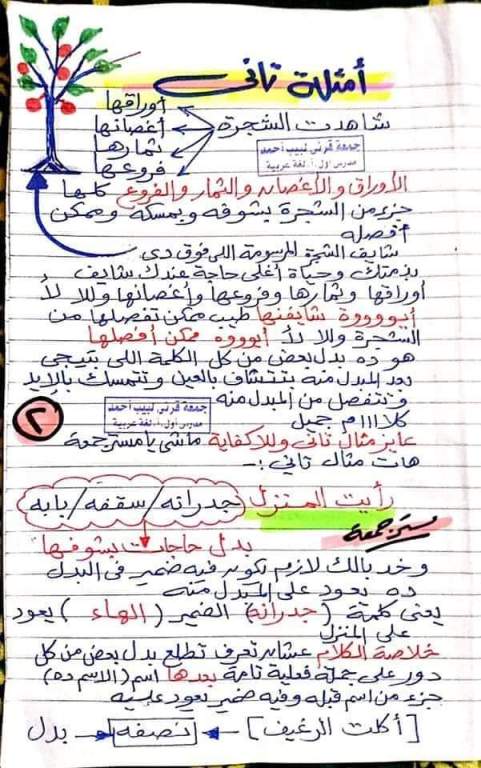 أمثلة تانى
شاهدت الشجرة
أوراقها
أغصانها
ثمارها
فروعها
جمعة قرنى لبيب أحمد
مدرس أول أ. لغة عربية
الأوراق والأغصان والثمار والفروع كلها
جزء من الشجرة بشوفه وبمسكه وممكن
أفصله
شايف الشجرة المرسومة اللى فوق دى
بذمتك وحياة أغلى حاجة عندك شايف
أوراقها وثمارها وفروعها وأغصانها وللا لأ
أيووووة شايفنها طيب ممكن تفصلها من
الشجرة وللا لأ أيوووه ممكن أفصلها
هو ده بدل بعض من كل الكلمة اللى بتيجى
بعد المبدل منه بتتشاف بالعين وتتمسك بالايد
وتنفصل من المبدل منه
كلاااام جميل
جمعة قرنى لبيب أحمد
مدرس أول أ. لغة عربية
٢
عايز مثال تانى وللا كفاية ماشى يا مستر جمعة
هات مثال تانى :-
رأيت المنزل جدرانه / سقفه / بابه
مستر جمعة
بدل حاجات بشوفها
وخد بالك لازم تكون فيه ضمير فى البدل
ده يعود على المبدل منه
يعنى كلمة (جدرانه) الضمير (الهاء) يعود
على المنزل
خلاصة الكلام عشان تعرف تطلع بدل بعض من كل
دور على جملة فعلية تامة بعدها اسم (الاسم ده)
جزء من اسم قبله وفيه ضمير يعود عليه
[أكلت الرغيف] نصفه بدل